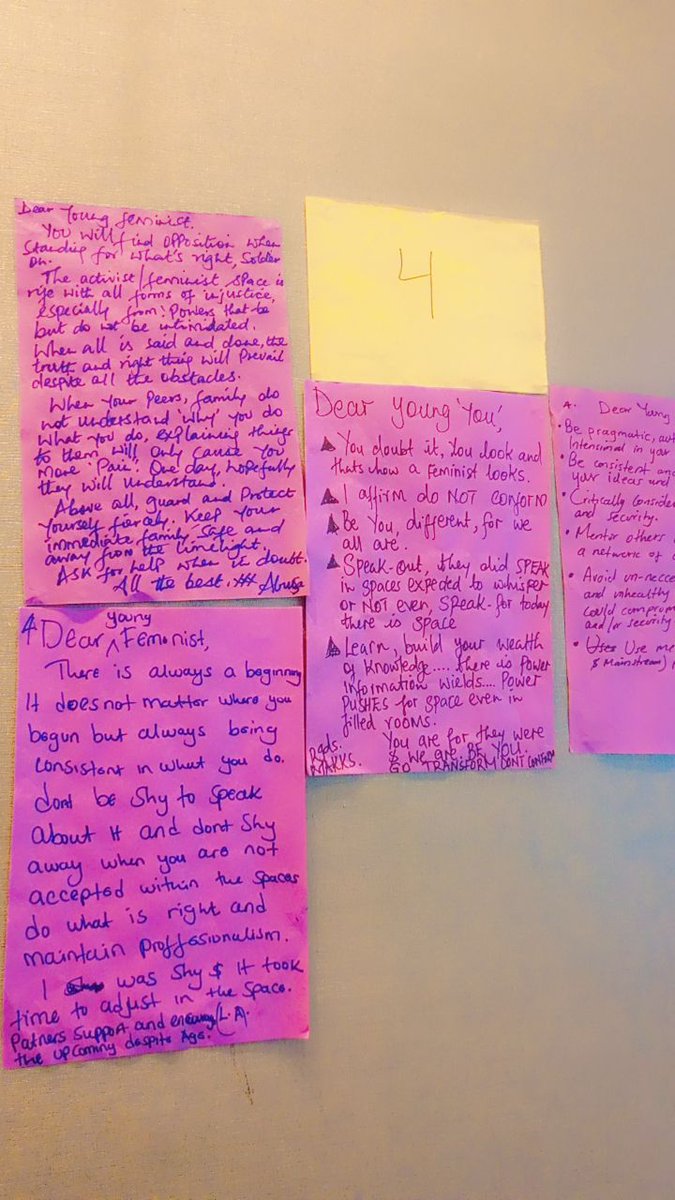 Dear Young feminist.
You will find opposition when
Standing for what's right, Soldier
On.
The activist/feminist space is
rife with all forms of injustice,
especially from: Powers that be
but do not be intimidated.
When all is said and done, the
truth and right thing will Prevail
despite all the obstacles.
When Your Peers, family do
not understand 'why' you do
what you do, explaining things
to them will only cause you
more 'Pain'. One day, hopefully
they will understand.
Above all, guard and Protect
yourself fiercely. Keep your
immediate family safe and
away from the limelight.
ASK for help when in doubt.
All the best.
4
Dear Young 'You',
You doubt it, You look and
thats how a feminist looks.
I affirm do NOT conform
Be You, different, for we
all are.
Speak-Out, they did SPEAK
in spaces expected to whisper
or NOT even, Speak-for today
there is space
Learn, build your wealth
of knowledge.... there is Power
information wields... Power
PUSHES for space even in
filled rooms.
You are for they were
& we are. BE YOU.
GO TRANSFORM DONT CONFORM
Rgds.
MAKKS.
4 Dear young Feminist,
There is always a beginning
It does not matter where you
begun but always being
consistent in what you do.
dont be shy to speak
about it and dont shy
away when you are not
accepted within the spaces
do what is right and
maintain proffessionalism.
I was shy & it took
time to adjust in the space.
Patners support and (L.A).
the upcoming despite age.
A. Dear Young
• Be pragmatic, aut
Intensional in your
• Be consistent an
your ideas and
• Critically conside
and security.
• Mentor others
a network of
• Avoid un-necce
and unhealthy
could comprom
and/or security
• Use me
& Mainstream)